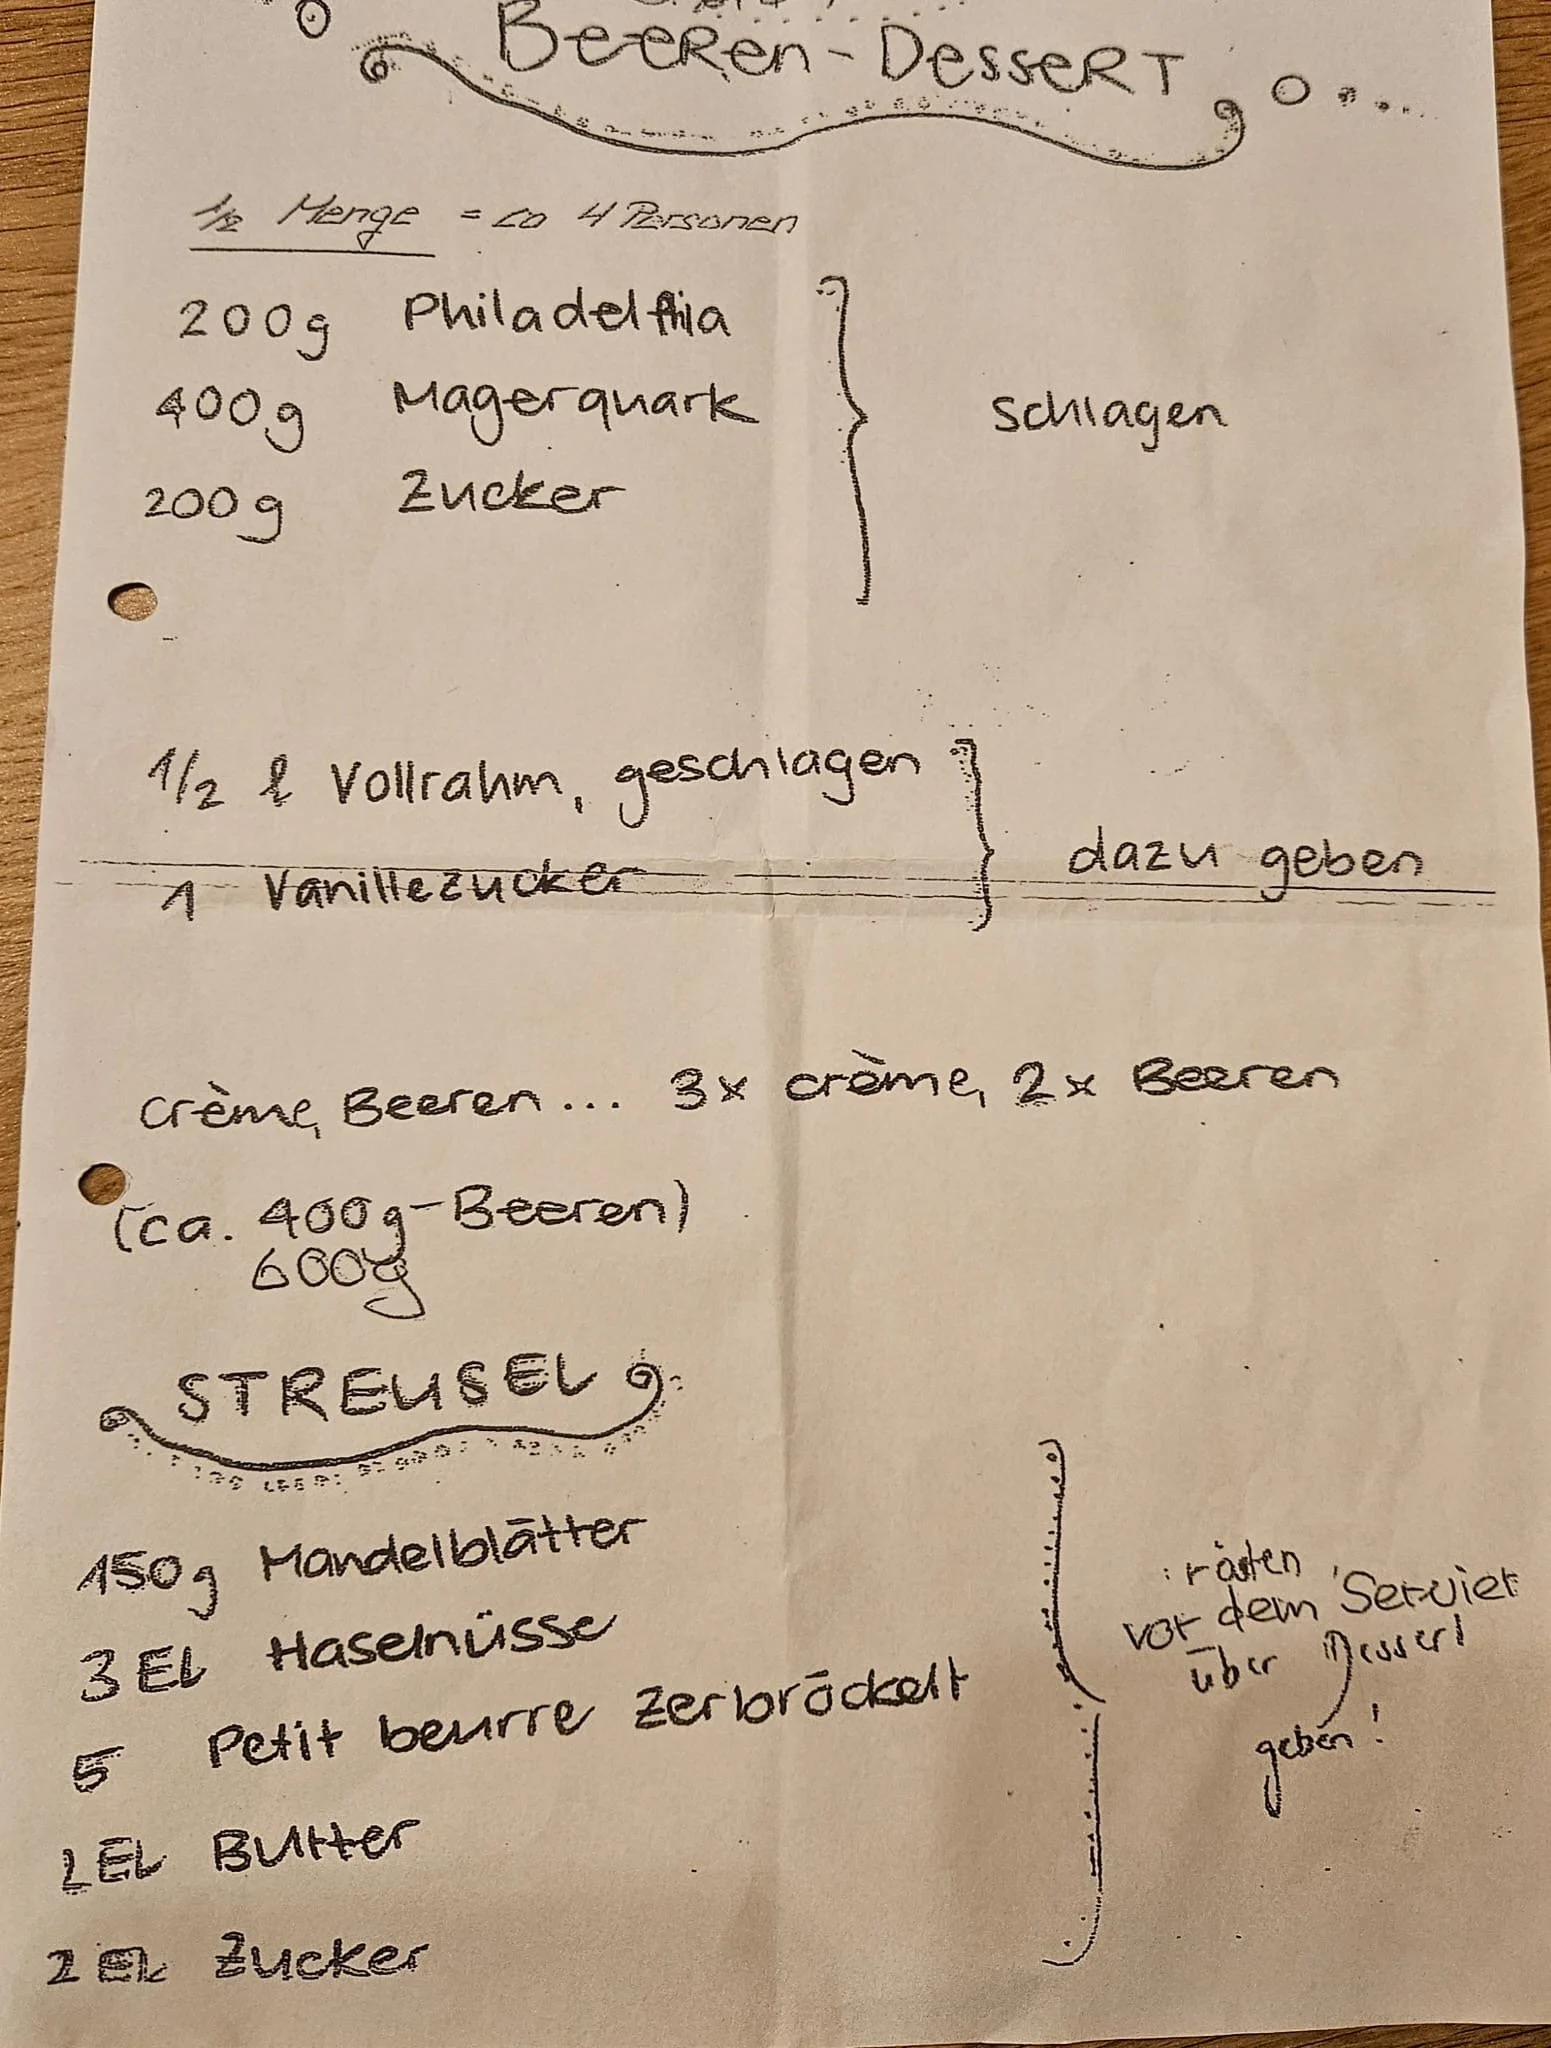 Beeren-Dessert
1/2 Menge = ca 4 Personen
200g Philadelphia
400g Magerquark
200g Zucker
schlagen
1/2 l Vollrahm, geschlagen
1 Vanillezucker
dazu geben
crème, Beeren... 3x crème, 2x Beeren
(ca. 400g-Beeren)
600g
STREUSEL
150g Mandelblätter
3 EL Haselnüsse
5 Petit beurre zerbröckelt
EL Butter
2 EL Zucker
rösten
vor dem Servier
über Dessert
geben!